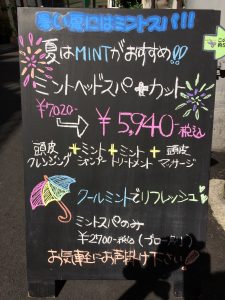 暑い夏にはミントスパ!!!
夏はMINTがおすすめ!!
ミントヘッドスパ+カット
¥7020-
→ ¥5,940-税込
頭皮クレンジング+ミントシャンプー+ミントトリートメント+頭皮マッサージ
クールミントでリフレッシュ
ミントスパのみ
¥2700-税込(ブロー
お気軽にお声掛け下さい!!